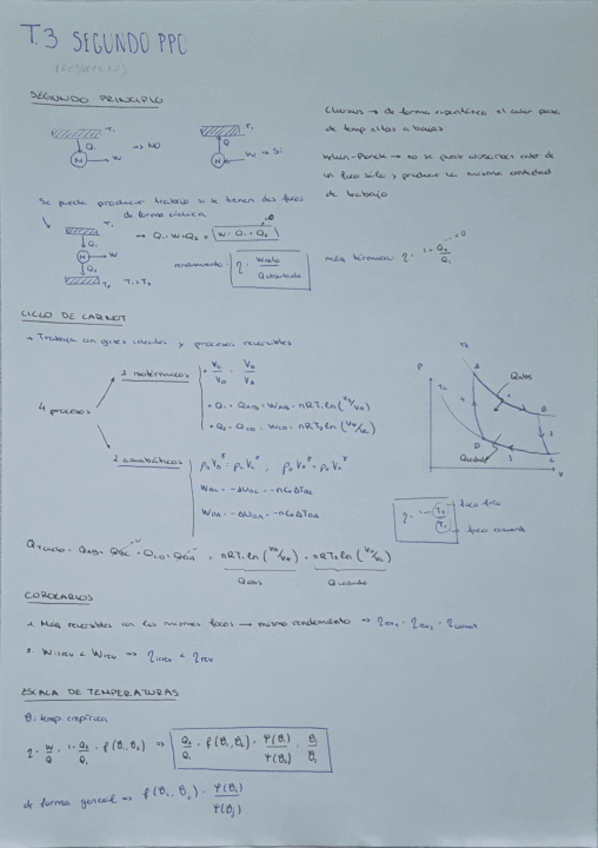 T.3 SEGUNDO PPO
(RESUMEN)
SEGUNDO PRINCIPIO
T₁
Q₁
M → W ⇒ NO
T₁
Q
M ← W ⇒ Sí
Clausius → de forma espontánea el calor pasa
de temp altas a bajas
→ no se puede absorber calor de
un foco sólo y producir la misma cantidad
de trabajo
Se puede producir trabajo si se tienen dos focos
de forma cíclica
T₁
Q₁
M → W
Q₂
T₂ T₁>T₂
→ Q₁=W+Q₂ ⇒ W=Q₁+Q₂ <0
rendimiento: η = W neto / Q absorbido
máq térmica: η = 1+Q₂/Q₁ <0
CICLO DE CARNOT
→ Trabaja con gases ideales y procesos reversibles
4 procesos
2 isotérmicos
• Vc/VD = VB/VA
• Q₁ = QAB = WAB = nRT₁ln(VB/VA)
• Q₂ = QCD = WCD = nRT₂ln(VD/VC)
2 adiabáticos
WBC = -ΔUBC = -nCvΔTBC
WDA = -ΔUDA = -nCvΔTDA
P
Th
Tc
A
Qabs
B
2
D
3
C
V
Qcedido
η = 1 - T₂/T₁
foco frío
foco caliente
QTCICLO = QAB + QBC + QCD + QDA = nRT₁ln(VB/VA) + nRT₂ln(VD/VC)
Qabs
Qcedido
COROLARIOS
1. Máq reversibles con los mismos focos → mismo rendimiento ⇒ ηrev₁ = ηrev₂ = ηcarnot
2. Wirrev < Wrev ⇒ ηirrev < ηrev
ESCALA DE TEMPERATURAS
θ: temp. empírica
η = W/Q = 1+Q₂/Q₁ = f(θ₁,θ₂) ⇒ Q₂/Q₁ = f(θ₁,θ₂) = Ψ(θ₁)/Ψ(θ₂) = θ₁/θ₂
de forma general ⇒ f(θi,θj) = Ψ(θi)/Ψ(θj)